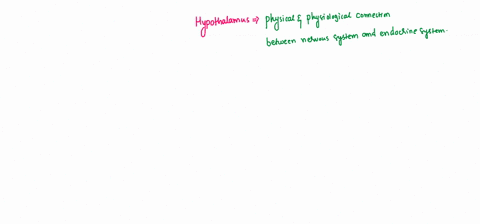 Hypothalamus ⇒ physical & physiological connection
between nervous system and endocrine system.